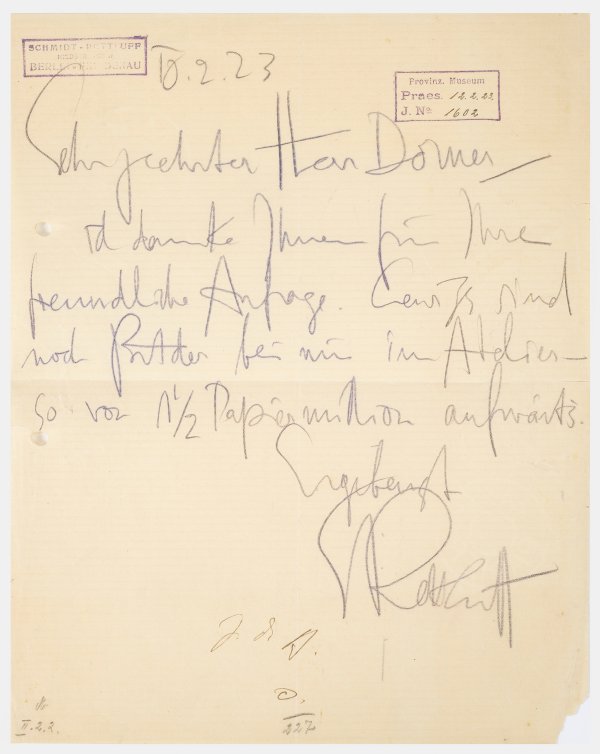 SCHMIDT-ROTTLUFF
BERLIN-FRIEDENAU
10.2.23
Provinz. Museum
Praes. 12.2.23.
J. No 1602
Sehr geehrter Herr Dorner –
ich danke Ihnen für Ihre
freundliche Anfrage. Gewiß sind
noch Bilder bei mir im Atelier –
so von 1 1/2 Papiermillion aufwärts.
Ergebenst
SRottluff
z. d. A.
D.
227
II.2.2.